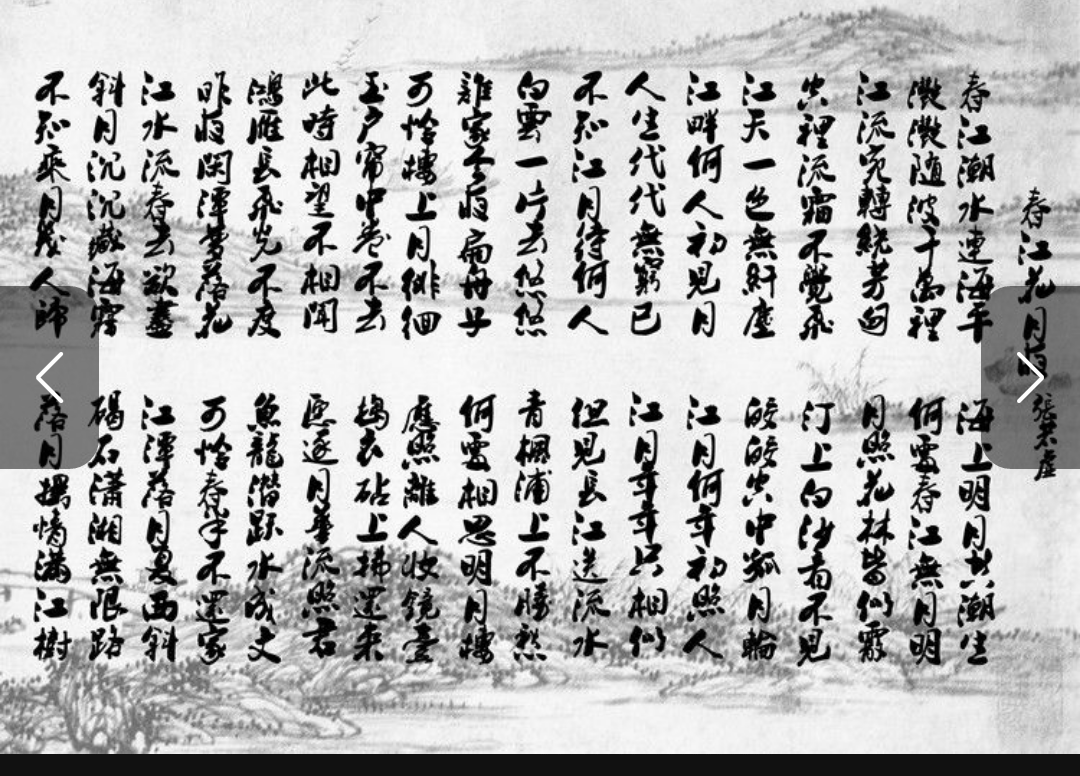 春江花月夜 張若虛
春江潮水連海平 海上明月共潮生
灩灩隨波千萬裡 何處春江無月明
江流宛轉繞芳甸 月照花林皆似霰
空裡流霜不覺飛 汀上白沙看不見
江天一色無纖塵 皎皎空中孤月輪
江畔何人初見月 江月何年初照人
人生代代無窮已 江月年年只相似
不知江月待何人 但見長江送流水
白雲一片去悠悠 青楓浦上不勝愁
誰家今夜扁舟子 何處相思明月樓
可憐樓上月徘徊 應照離人妝鏡臺
玉戶簾中卷不去 搗衣砧上拂還來
此時相望不相聞 願逐月華流照君
鴻雁長飛光不度 魚龍潛躍水成文
昨夜閑潭夢落花 可憐春半不還家
江水流春去欲盡 江潭落月复西斜
斜月沉沉藏海霧 碣石瀟湘無限路
不知乘月幾人歸 落月搖情滿江樹